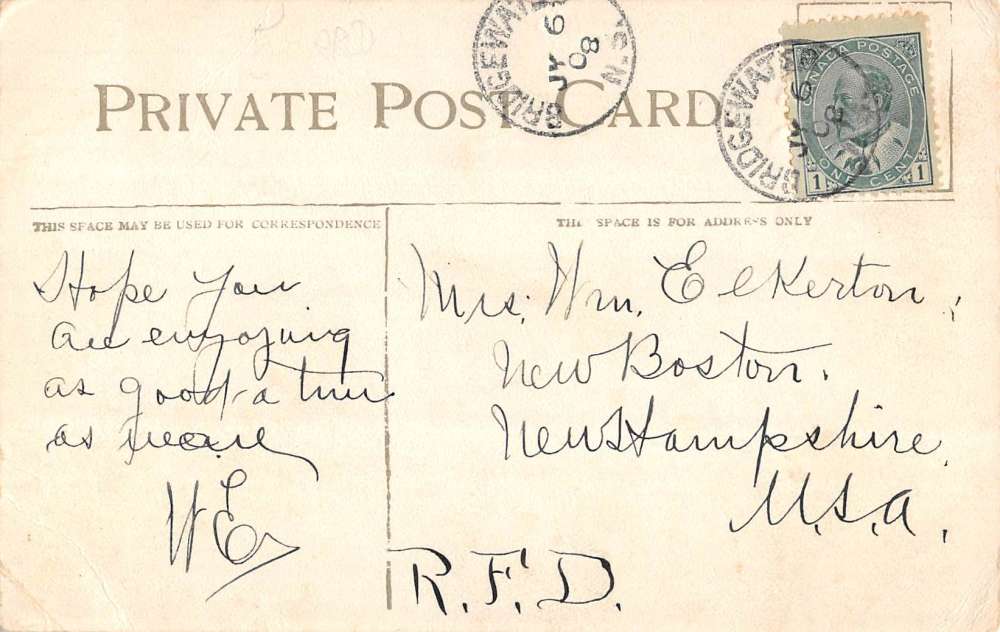 PRIVATE POST CARD
BRIDGEWATER
JY 6
08
N.S.
BRIDGEWATER
JY 6
08
CANADA POSTAGE
1 ONE CENT 1
THIS SPACE MAY BE USED FOR CORRESPONDENCE
THIS SPACE IS FOR ADDRESS ONLY
Hope you
are enjoying
as good a time
as we are
WE
Mrs. Wm. Elkerton,
New Boston.
New Hampshire,
U.S.A.
R.F.D.